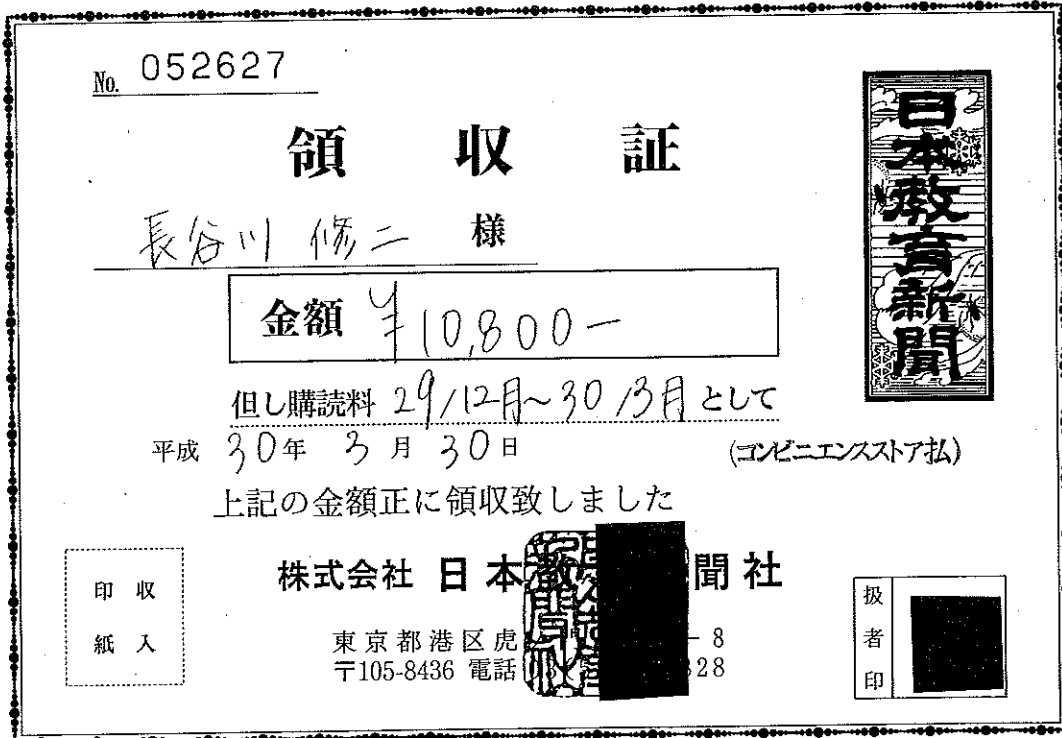 No. 052627
領収証
長谷川 修二 様
日本教育新聞
金額 ¥10,800-
但し購読料 29/12月~30/3月として
平成 30年 3月 30日
(コンビニエンスストア払)
上記の金額正に領収致しました
株式会社 日本 聞社
東京都港区虎 -8
〒105-8436 電話 328
収入
印紙
扱者印